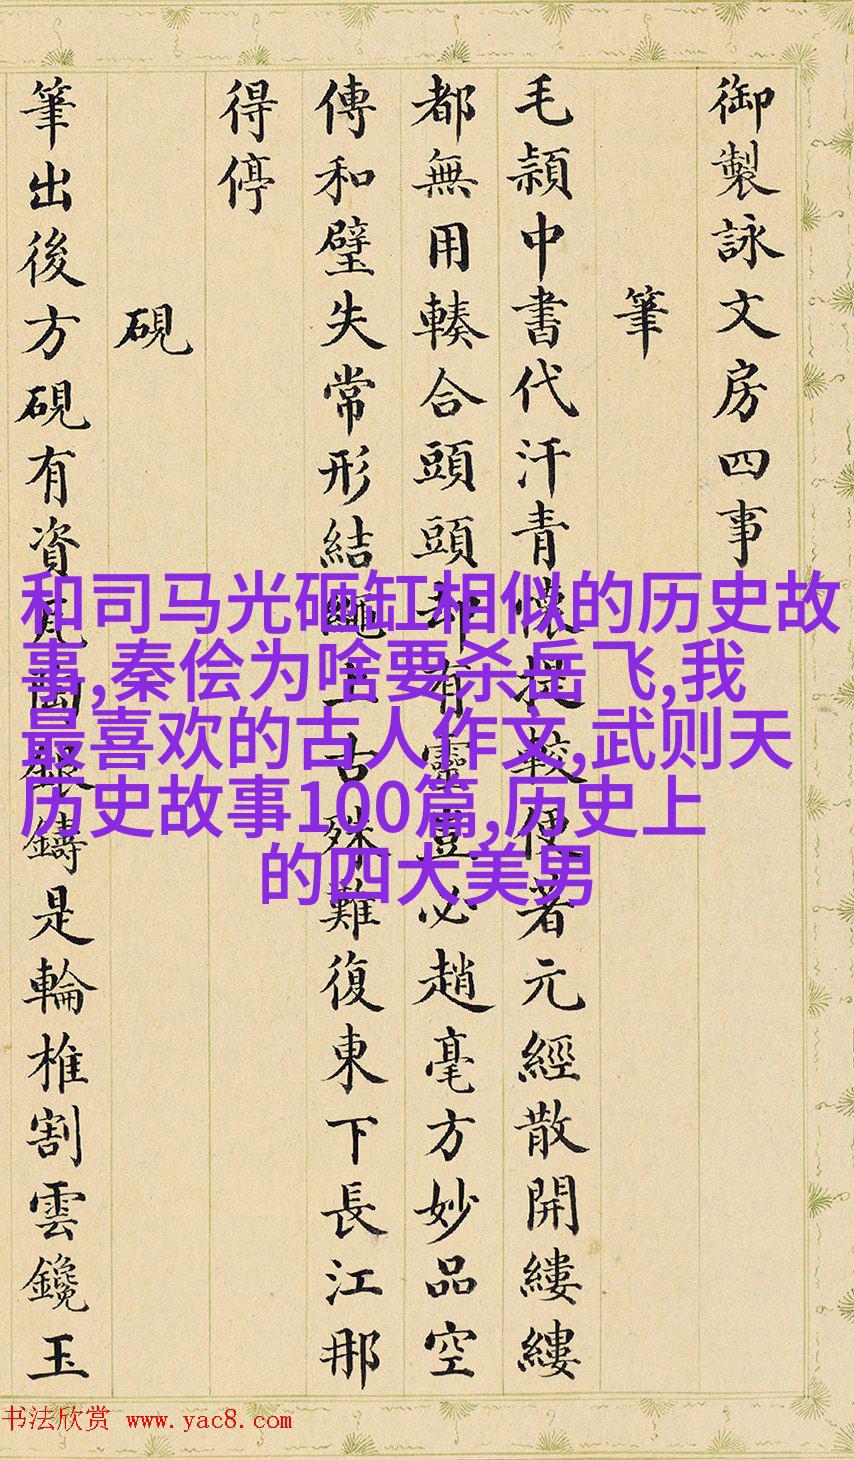 御製詠文房四事
筆
毛穎中書代汗青懷提較便著元經散開縷縷
都無用輳合頭頭却有靈豈必趙毫方妙品空
傳和璧失常形結繩上古殊難復東下長江那
得停
硯
筆出後方硯有資瓦陶銀鑄是輪椎割雲鑱玉
和司马光砸缸相似的历史故
事,秦侩为啥要杀岳飞,我
最喜欢的古人作文,武则天
历史故事100篇,历史上
的四大美男
书法欣赏 www.yac8.com